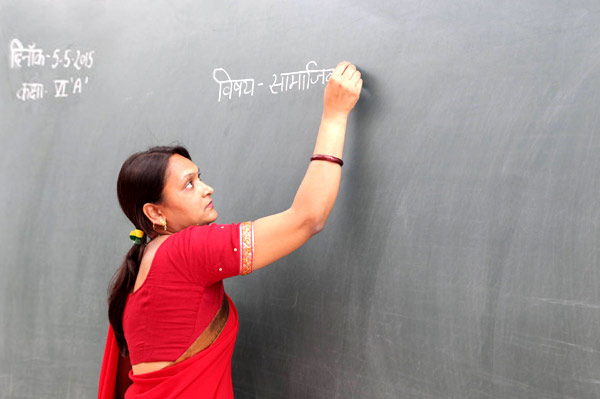 दिनाँक-5.5.2015
कक्षा- VI 'A'
विषय - सामाजिक